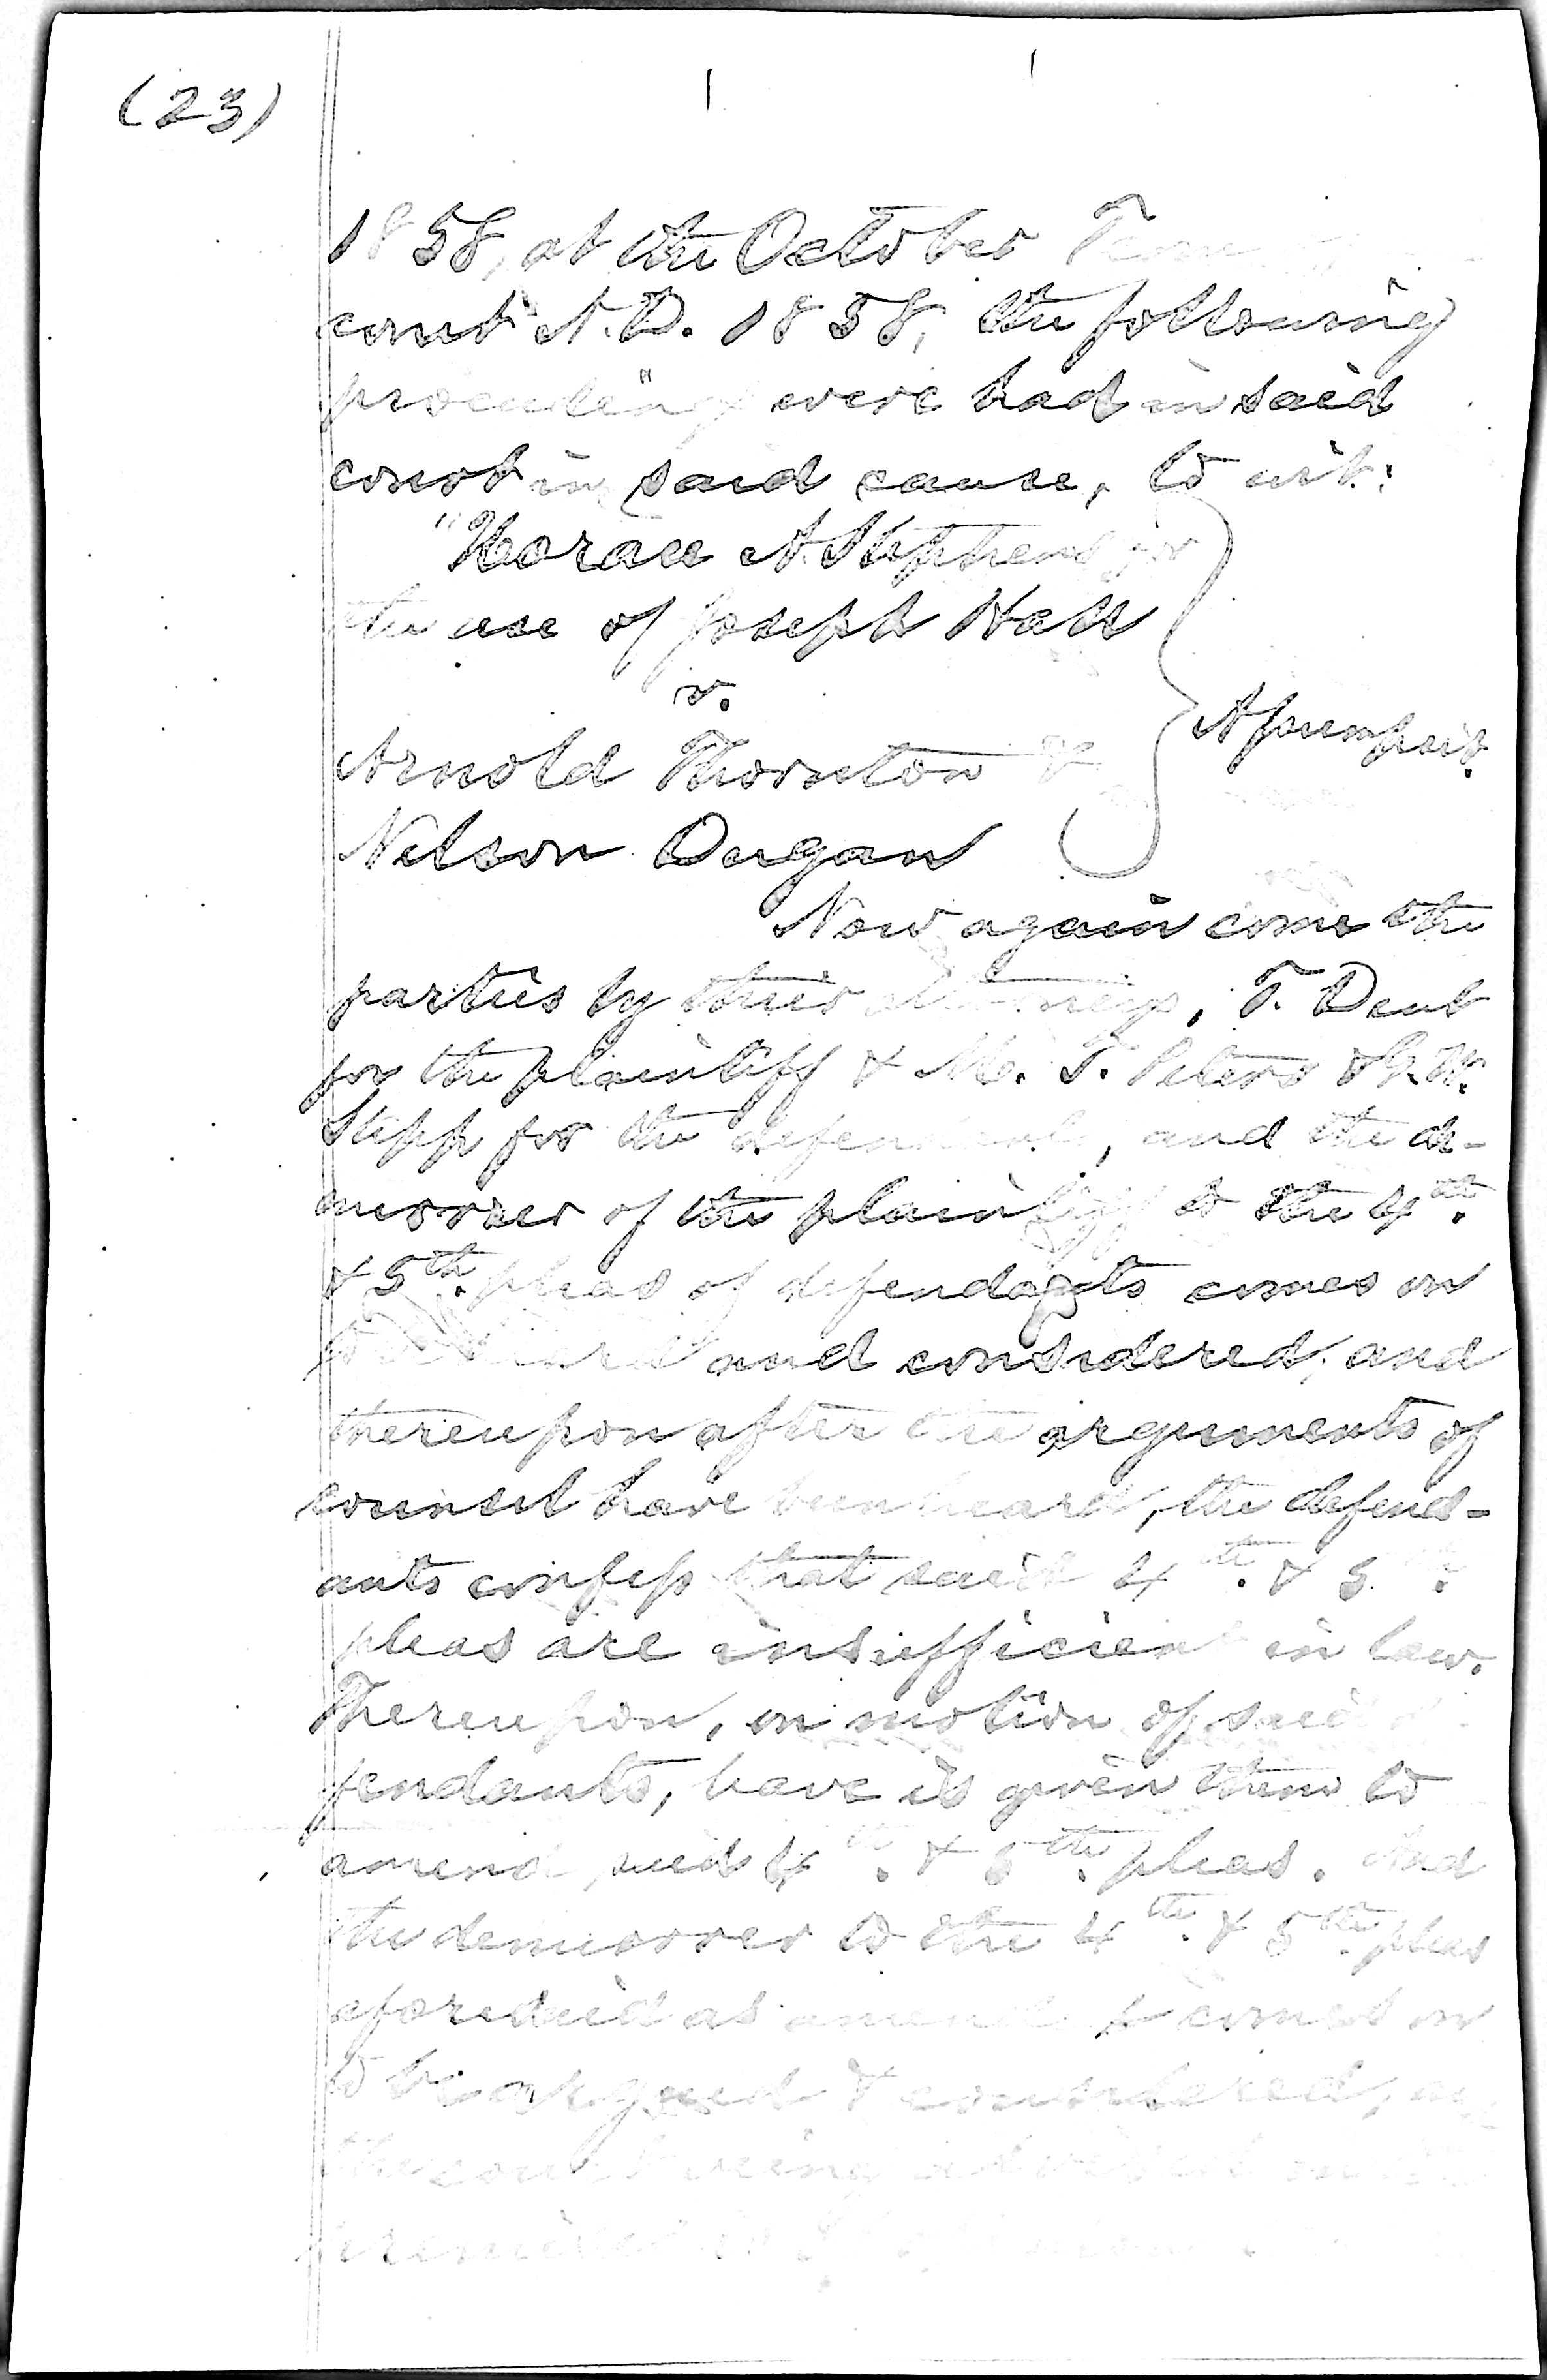 (23)
1858, at the October Term
court A.D. 1858, the following
proceedings were had in said
court in said cause, to wit:
"Horace A. Stephens for
the use of Joseph Hall
v.
Arnold Thornton &
Nelson Dugan
Assumpsit.
Now again come the
parties by their attorneys, T. Dent
for the plaintiff & M. T. Peters & G. W.
Stipp for the defendants, and the de-
murrer of the plaintiff to the 4th.
& 5th. pleas of defendants comes on
and considered; and
thereupon after the arguments of
counsel have been heard, the defend-
ants confess that said 4th. & 5th.
pleas are insufficient in law.
Thereupon, on motion of said de
fendants, leave is given them to
amend said 4th. & 5th. pleas. And
the demurrer to the 4th. & 5th. pleas
aforesaid as amend comes on
to be argued & considered, and
the court being advised